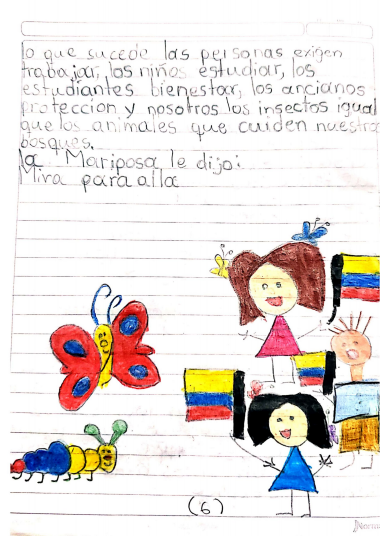 lo que sucede las personas exigen
trabajar, los niños estudiar, los
estudiantes bienestar, los ancianos
proteccion y nosotros los insectos igual
que los animales que cuiden nuestro
bosques.
la Mariposa le dijo:
Mira para alla
(6)